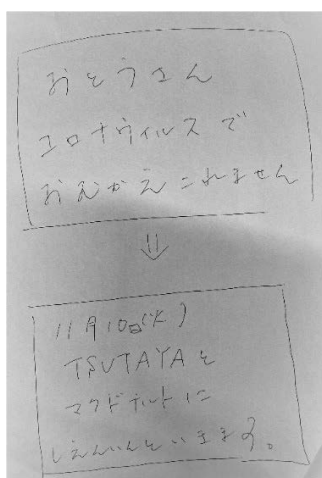 おとうさん
コロナウィルスで
おむかえこれません
⇓
11月10日(火)
TSUTAYAと
マクドナルドに
しえんいんといきます。